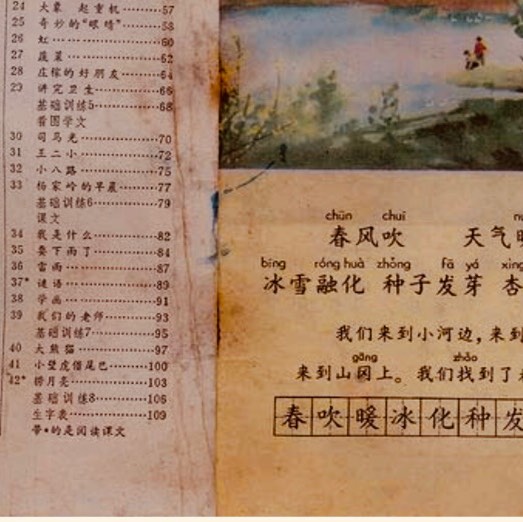 24 大象 起重机············57
25 奇妙的“眼睛”·········58
26 虹··················60
27 蔬菜················62
28 庄稼的好朋友·········64
29 讲究卫生············66
基础训练5············68
看图学文
30 司马光··············70
31 王二小··············72
32 小八路··············75
33 杨家岭的早晨·········77
基础训练6············79
课文
34 我是什么············82
35 要下雨了············84
36 雷雨················87
37* 谜语···············89
38 学画················91
39 我们的老师···········93
基础训练7············95
40 大熊猫··············97
41 小壁虎借尾巴·········100
42* 捞月亮·············103
基础训练8············106
生字表··············109
带*的是阅读课文
chūn chuī
春风吹 天气
bīng róng huà zhǒng fā yá xìng
冰雪融化 种子发芽 杏
我们来到小河边，来到
gāng zhǎo
来到山冈上。我们找到了
春吹暖冰化种发